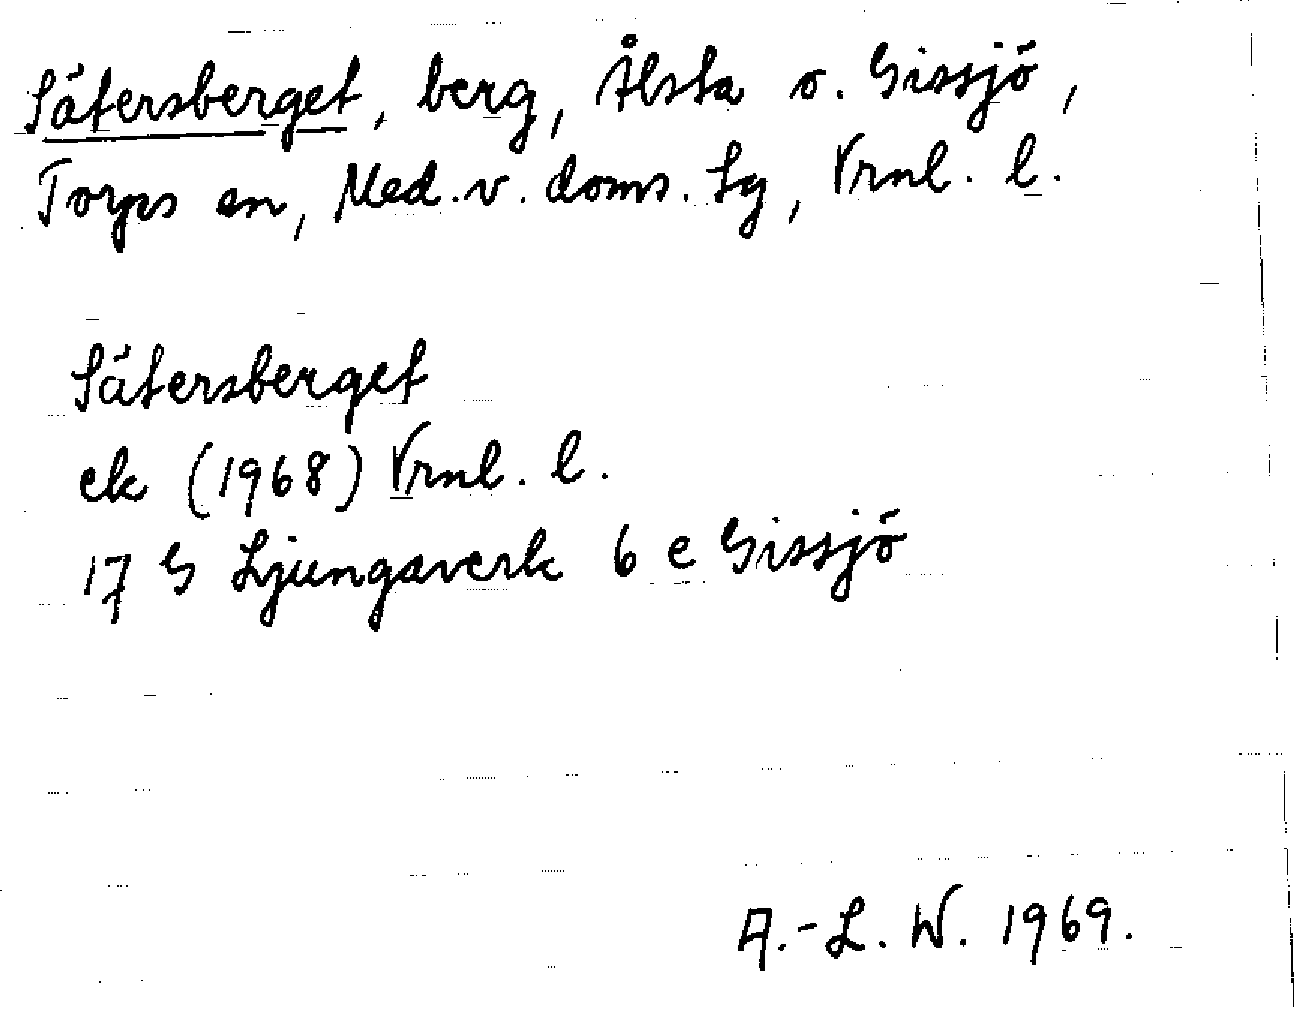 Sätersberget, berg, Ålsta o. Gissjö,
Torps sn, Med. v. doms. Lg, Vrnl. l.
Sätersberget
ek (1968) Vrnl. l.
17 G Ljungaverk 6 e Gissjö
A.-L. W. 1969.